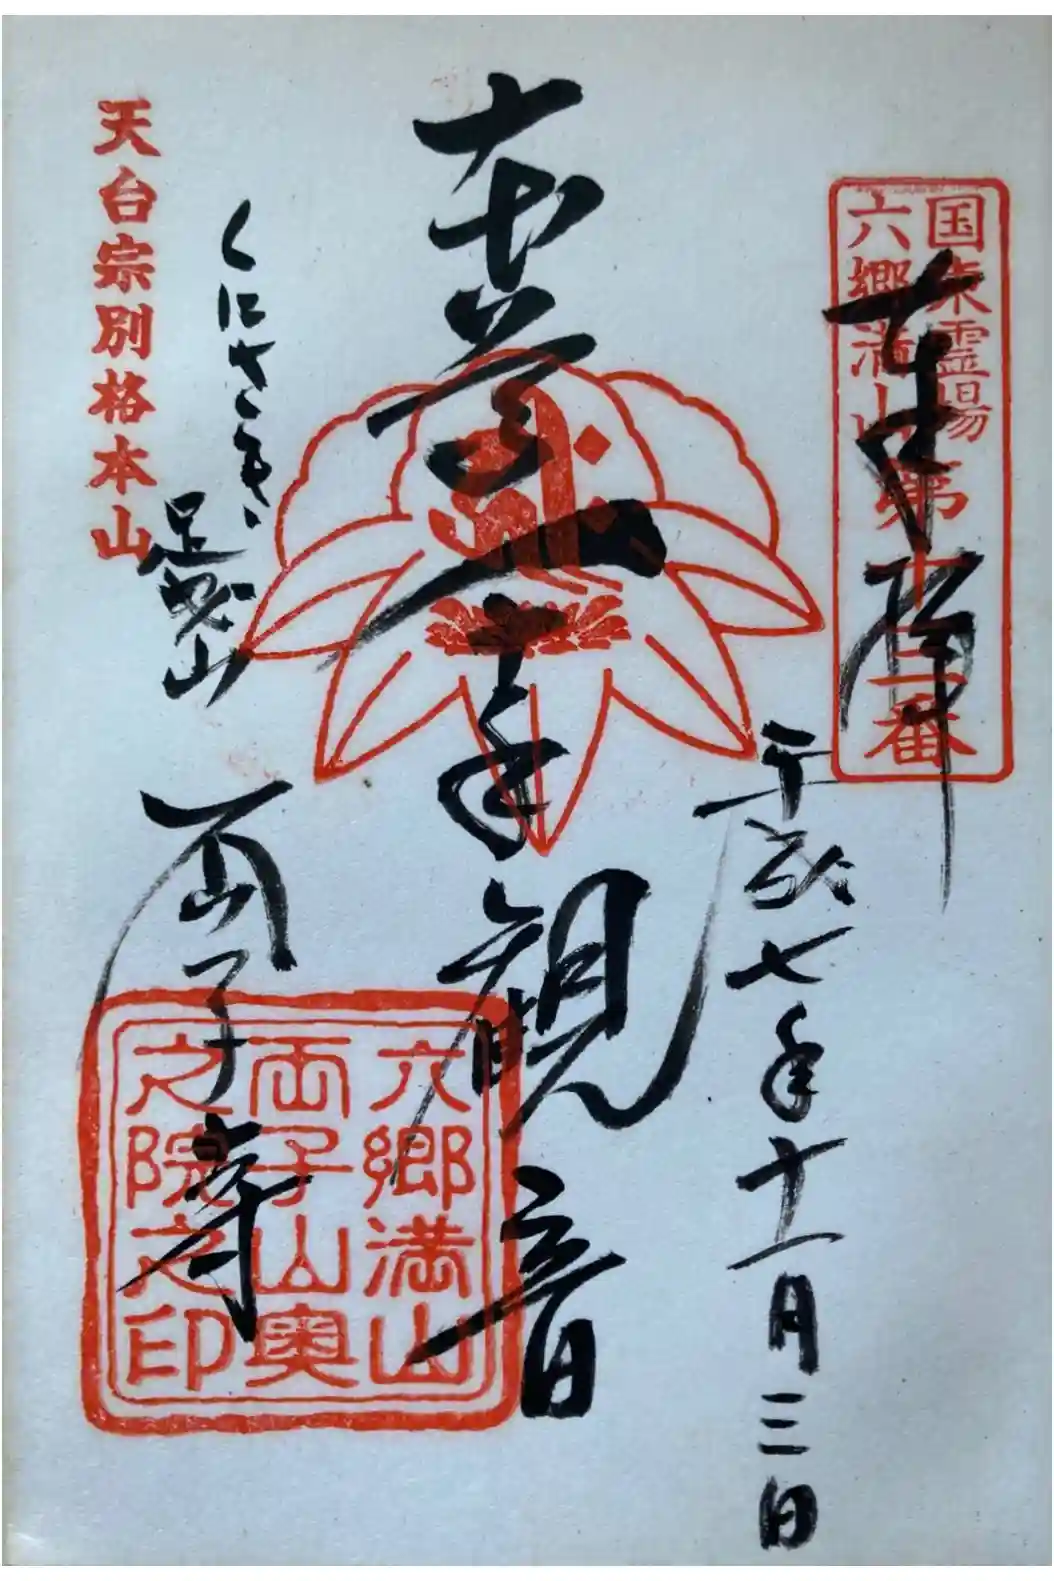 国東霊場
六郷満山
第十二番
奉拝
平成七年十一月三日
本尊
千手観音
くにさき
足曳山
両子寺
天台宗別格本山
六郷満山
両子山奥
之院之印